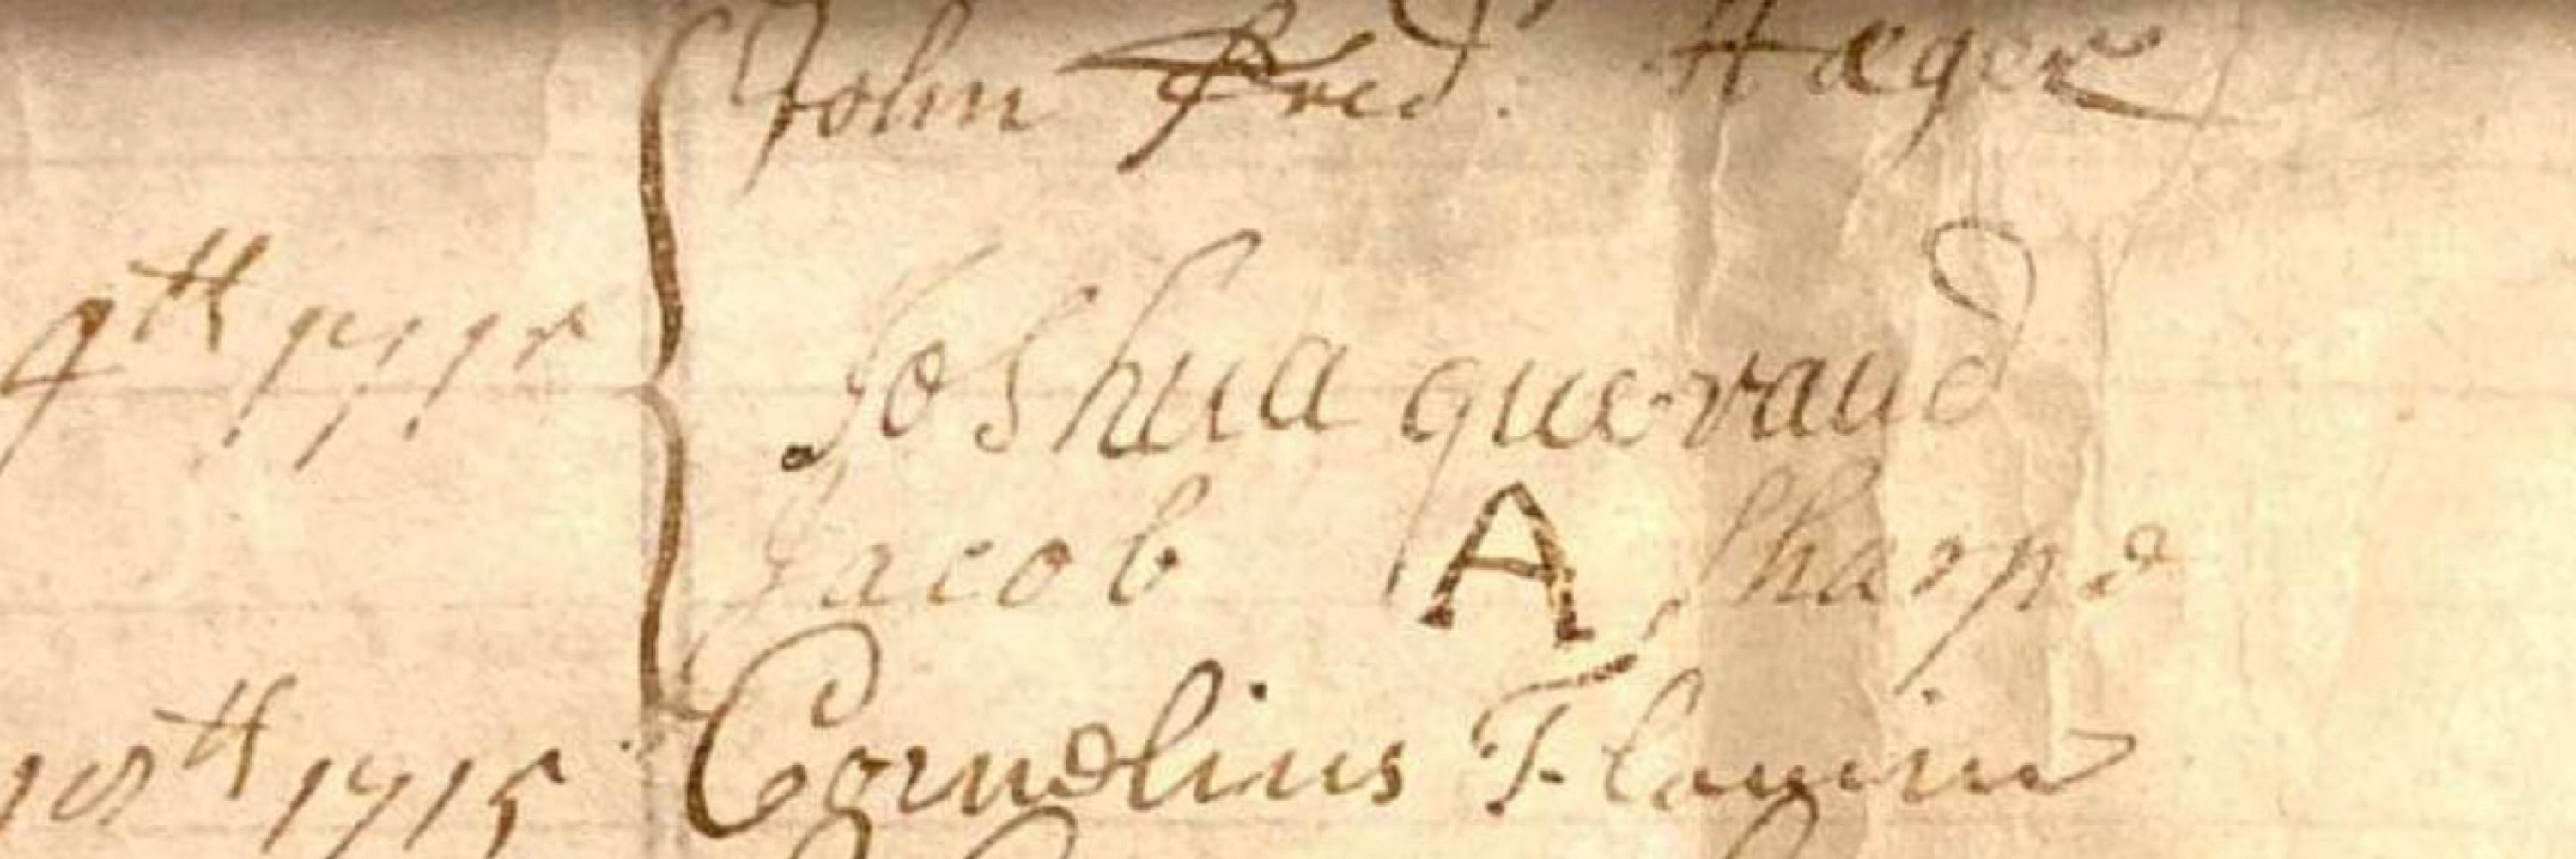 John Fred. Hæger
9th 1715 Joshua queraud
Jacob A Sharpe
18th 1715 Cornelius